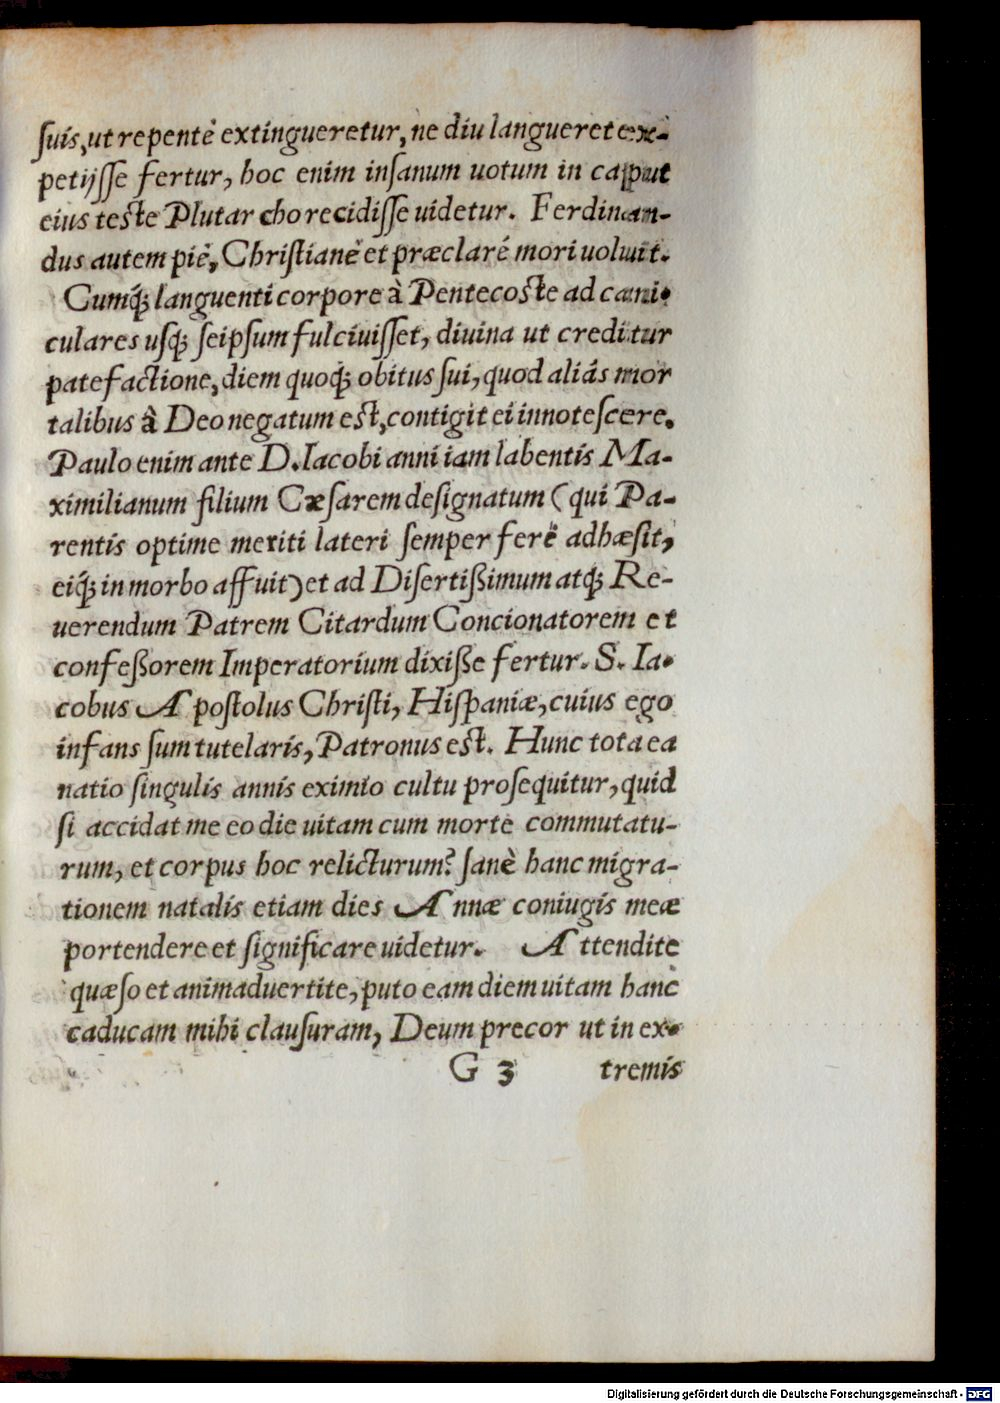 ſuis, ut repentè extingueretur, ne diu langueret ex-
petijſſe fertur, hoc enim inſanum uotum in caput
eius teſte Plutarcho recidiſſe uidetur. Ferdinan-
dus autem piè, Chriſtianè et præclarè mori uoluit.
Cumq́; languenti corpore à Pentecoſte ad cani-
culares uſq́; ſeipſum fulciuiſſet, diuina ut creditur
patefactione, diem quoq́; obitus ſui, quod aliâs mor
talibus â Deo negatum eſt, contigit ei innoteſcere.
Paulo enim ante D. Iacobi anni iam labentis Ma-
ximilianum filium Cæſarem deſignatum (qui Pa-
rentis optime meriti lateri ſemper ferè adhæſit,
eiq́; in morbo affuit) et ad Diſertißimum atq́; Re-
uerendum Patrem Citardum Concionatorem et
confeßorem Imperatorium dixiße fertur. S. Ia-
cobus Apoſtolus Chriſti, Hiſpaniæ, cuius ego
infans ſum tutelaris, Patronus eſt. Hunc tota ea
natio ſingulis annis eximio cultu proſequitur, quid
ſi accidat me eo die uitam cum morte commutatu-
rum, et corpus hoc relicturum? ſanè hanc migra-
tionem natalis etiam dies Annæ coniugis meæ
portendere et ſignificare uidetur. Attendite
quæſo et animaduertite, puto eam diem uitam hanc
caducam mihi clauſuram, Deum precor ut in ex-
G 3 tremis
Digitalisierung gefördert durch die Deutsche Forschungsgemeinschaft - DFG